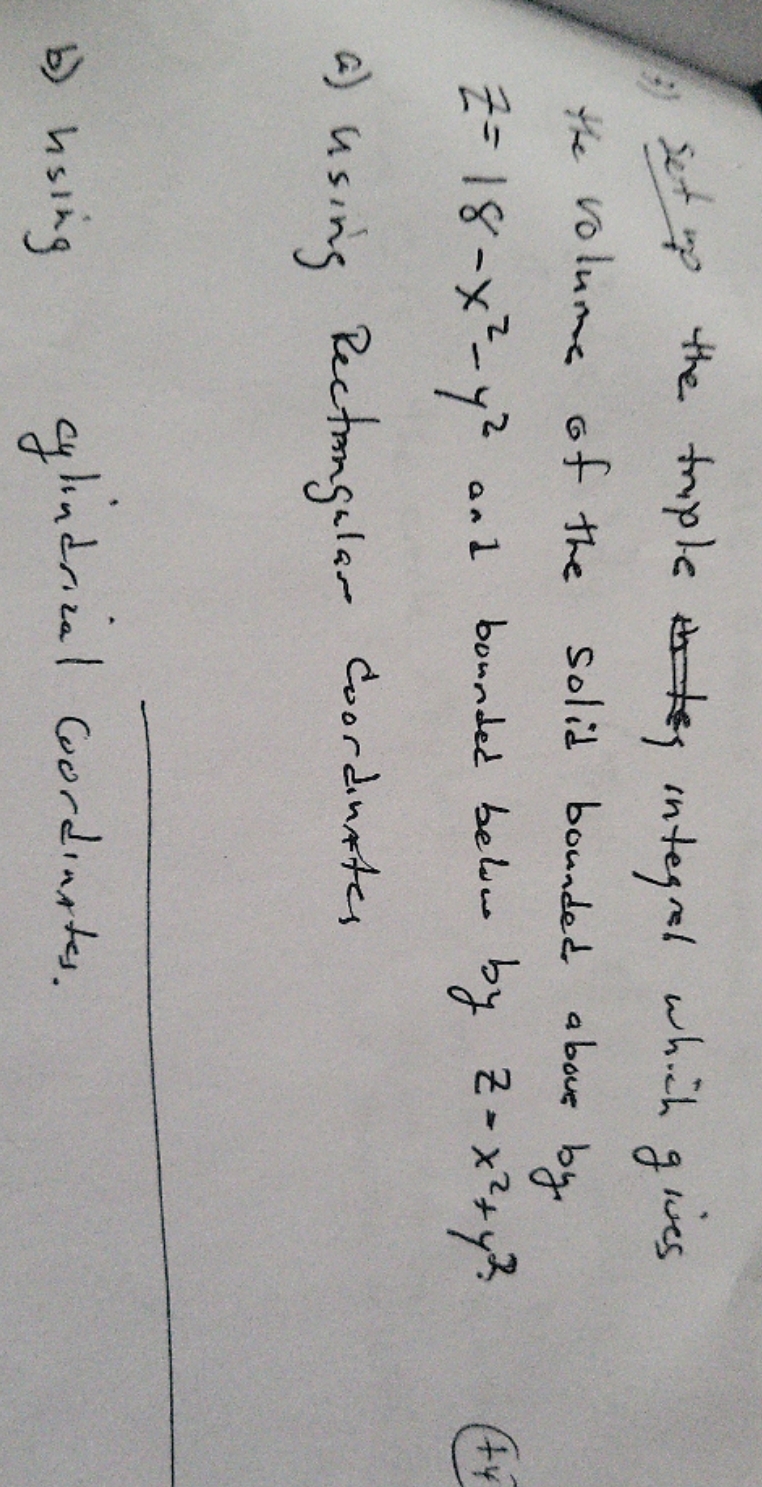 Set up the triple integral which gives
the volume of the solid bounded above by
Z = 18 - x² - y² and bounded below by z = x² + y².
a) using Rectangular Coordinates
b) using cylindrical Coordinates.